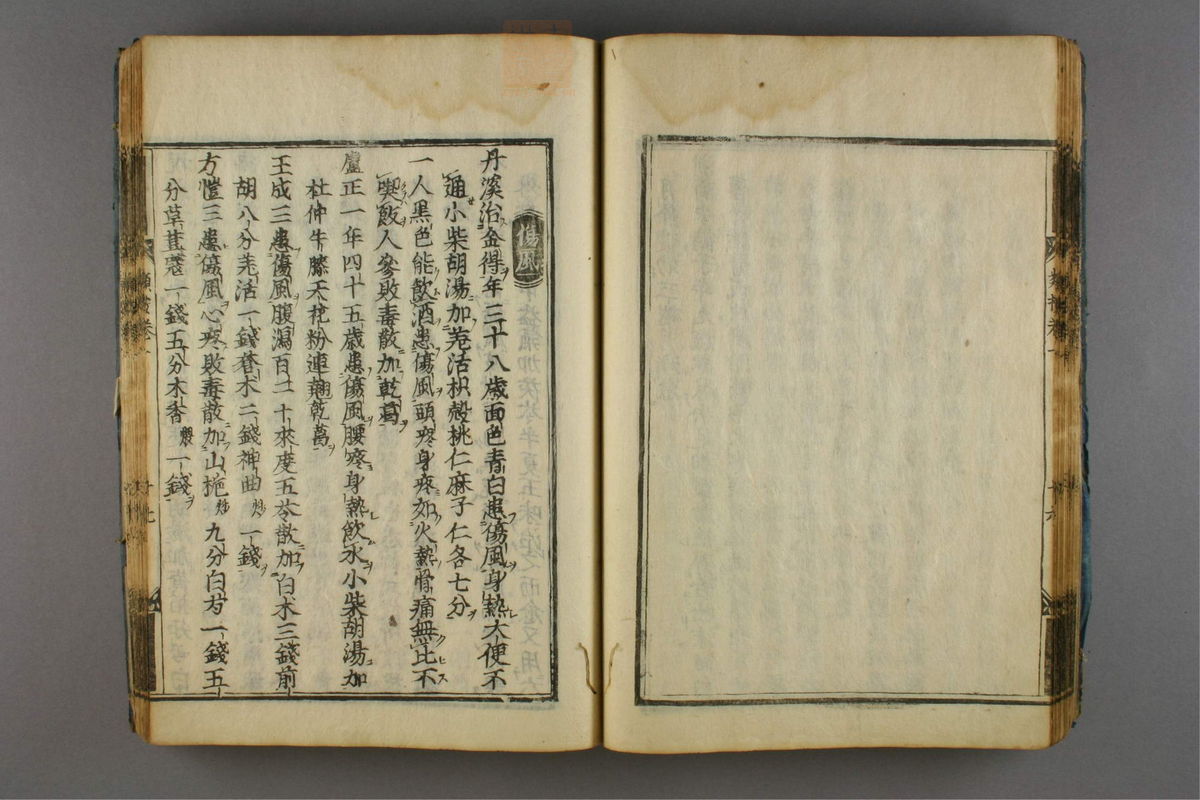 傷風
丹溪治金得年三十八歳面色青白患傷風身熱大便不
通小柴胡湯加羗活枳殻桃仁麻子仁各七分
一人黒色能飲酒患傷風頭疼身疼如火熱骨痛無比不
喫飯人參敗毒散加乾葛
盧正一年四十五歳患傷風腰疼身熱飲水小柴胡湯加
杜仲牛膝天花粉連翹乾葛
王成三患傷風腹瀉百二十來度五苓散加白术三錢前
胡八分羗活一錢蒼术二錢神曲炒一錢
方愷三患傷風心疼敗毒散加山梔炒九分白芍一錢五
分草荳蔲一錢五分木香一錢